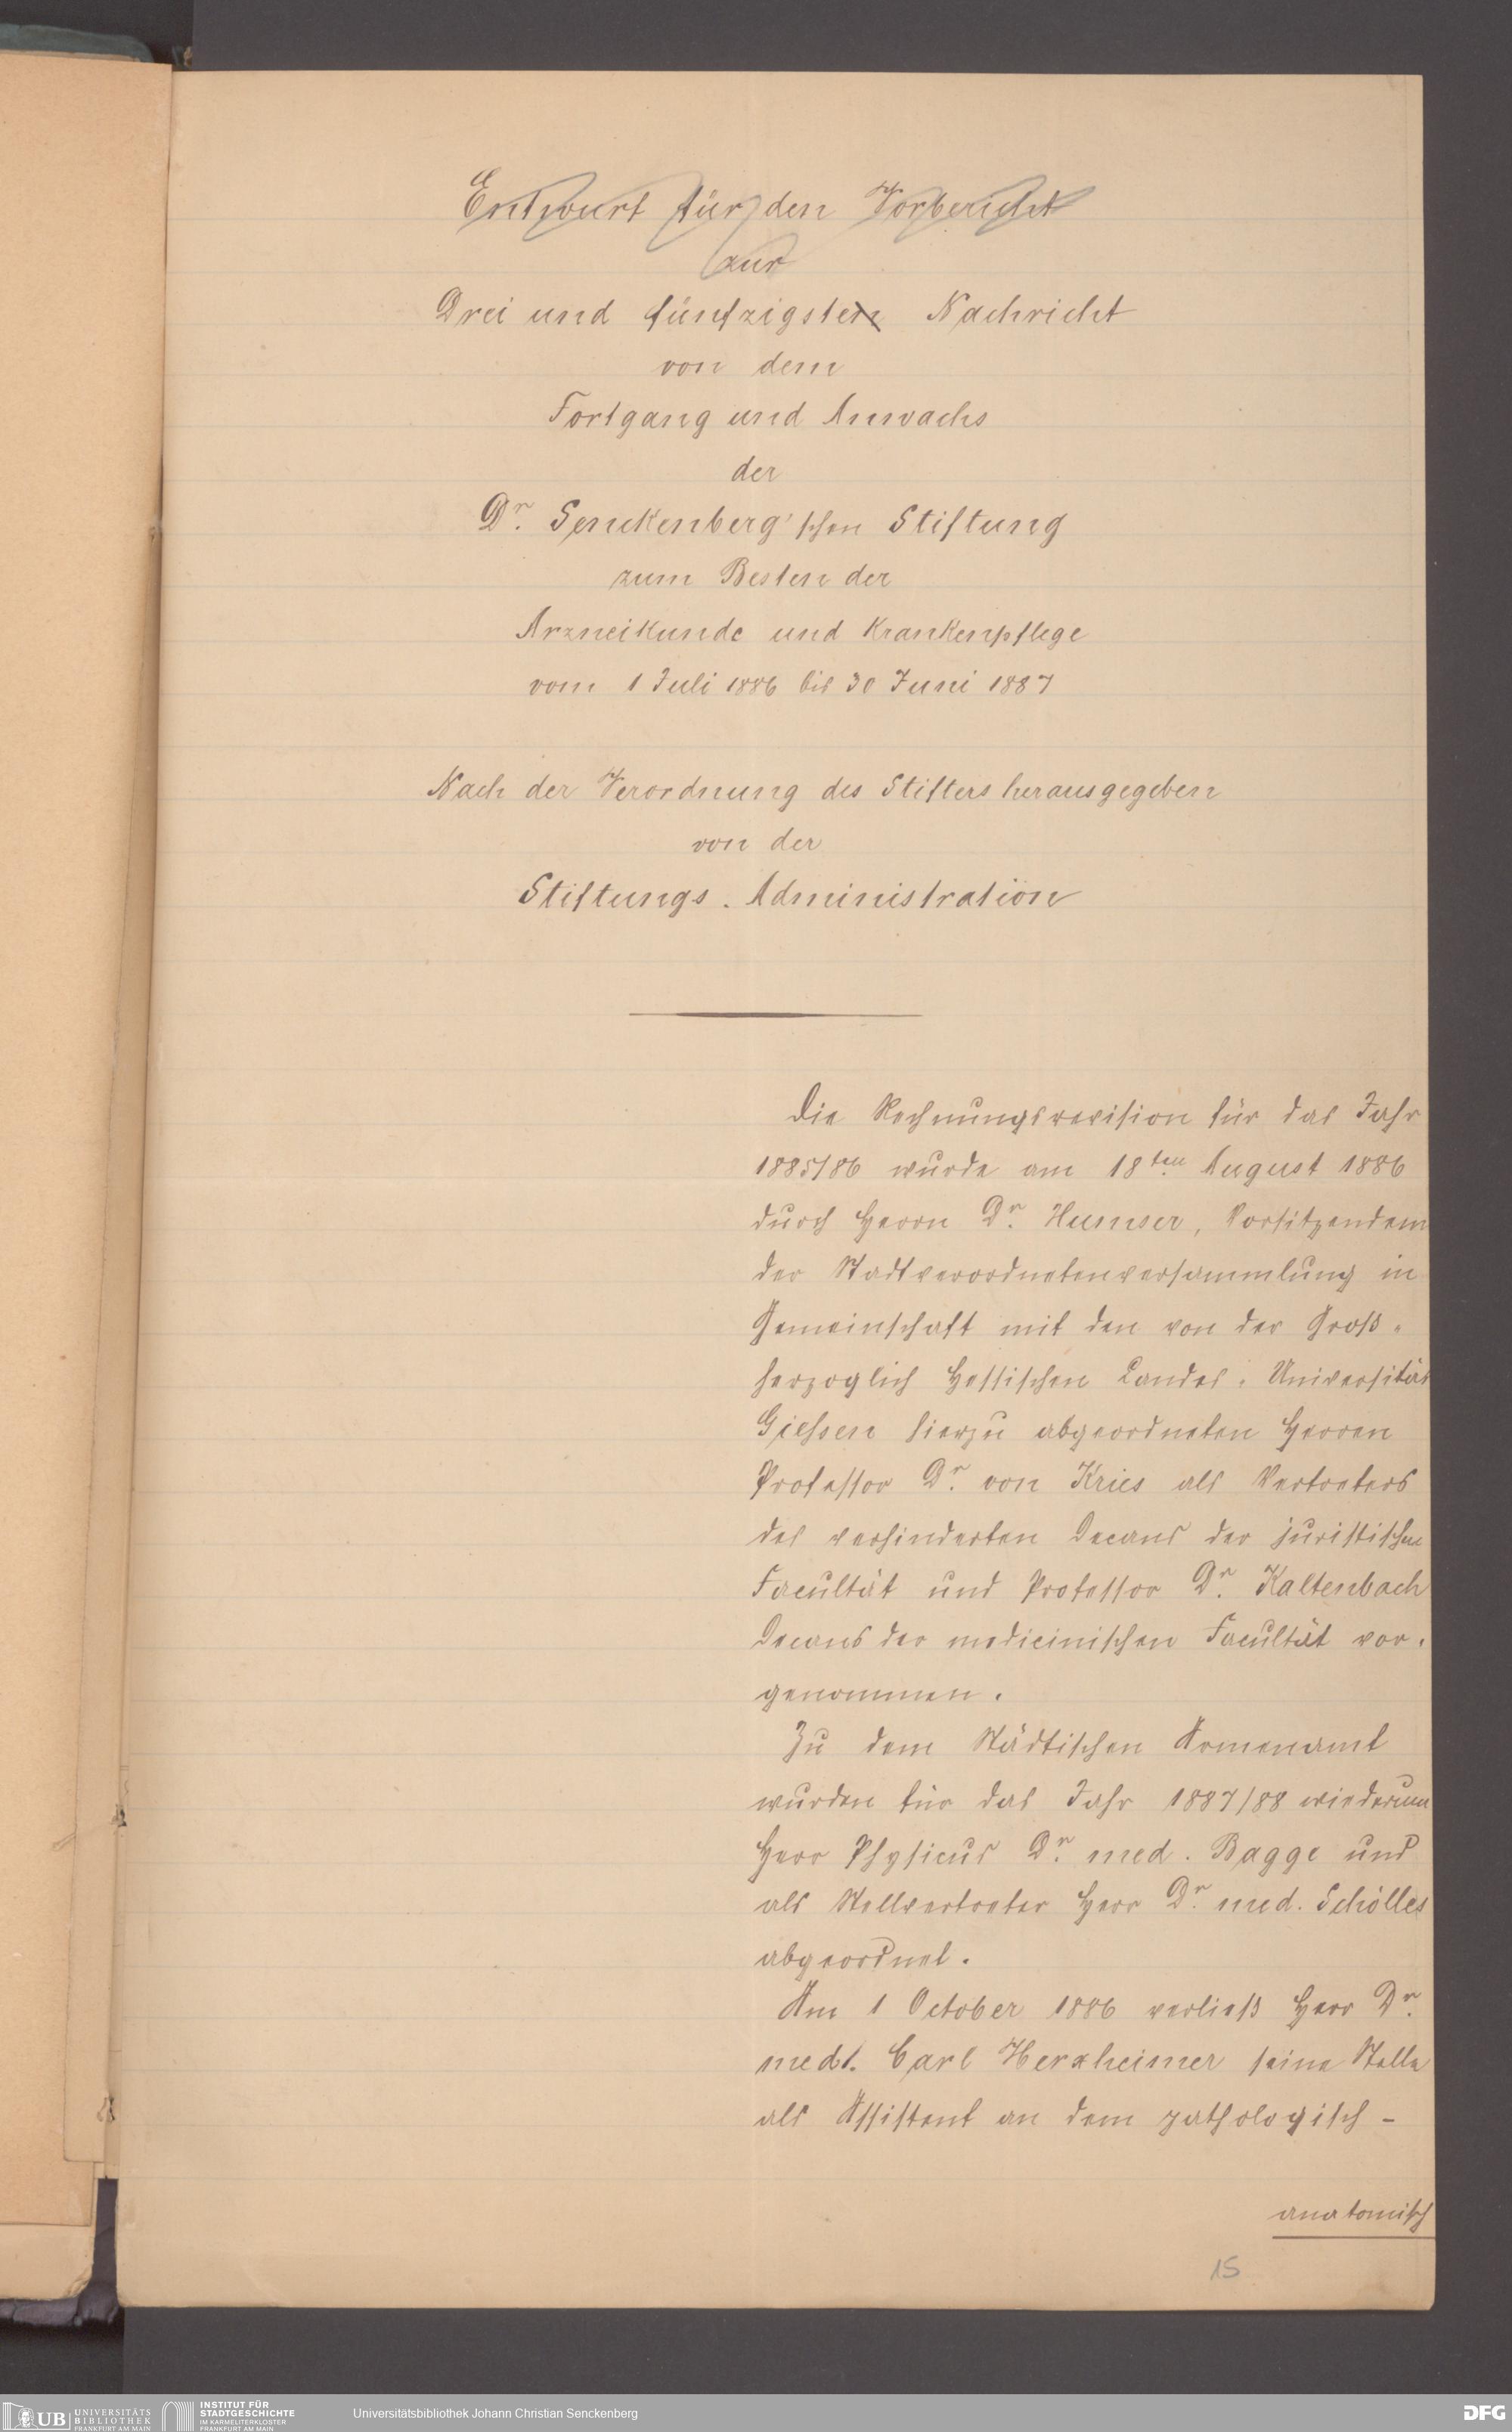 Entwurf für den Vorbericht
zur
Drei und fünfzigsten Nachricht
von dem
Fortgang und Anwachs
der
Dr. Senckenberg'schen Stiftung
zum Besten der
Arzneikunde und Krankenpflege
vom 1 Juli 1886 bis 30 Juni 1887
Nach der Verordnung des Stifters herausgegeben
von der
Stiftungs-Administration
Die Rechnungsrevision für das Jahr
1885/86 wurde am 18ten August 1886
durch Herrn Dr. Humser, Vorsitzendem
der Stadtverordnetenversammlung in
Gemeinschaft mit den von der Groß-
herzoglich Hessischen Landes-Universität
Giessen hierzu abgeordneten Herren
Professor Dr. von Kries als Vertreters
des verhinderten Decans der juristischen
Facultät und Professor Dr. Kaltenbach
Decans der medicinischen Facultät vor-
genommen.
Zu dem Städtischen Armenamt
wurden für das Jahr 1887/88 wiederum
Herr Physicus Dr. med. Bagge und
als Stellvertreter Herr Dr. med. Schölles
abgeordnet.
Am 1 October 1886 verließ Herr Dr.
med. Carl Herxheimer seine Stelle
als Assistent an dem pathologisch-
anatomisch
15
UB UNIVERSITÄTS
BIBLIOTHEK
FRANKFURT AM MAIN
INSTITUT FÜR
STADTGESCHICHTE
IM KARMELITERKLOSTER
FRANKFURT AM MAIN
Universitätsbibliothek Johann Christian Senckenberg
DFG